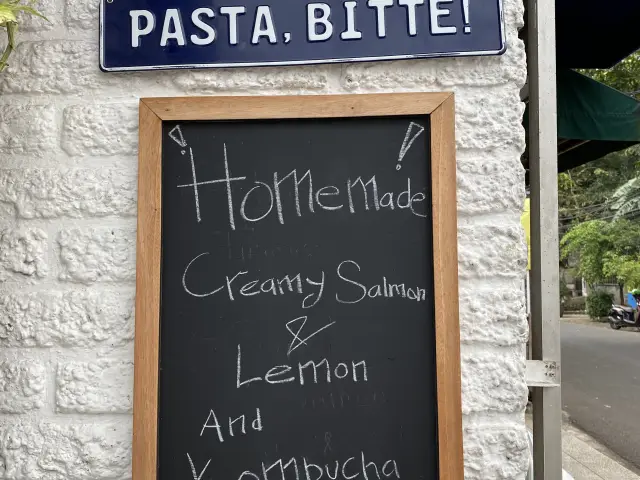 PASTA, BITTE!
! Homemade !
Creamy Salmon
&
Lemon
And
Kombucha